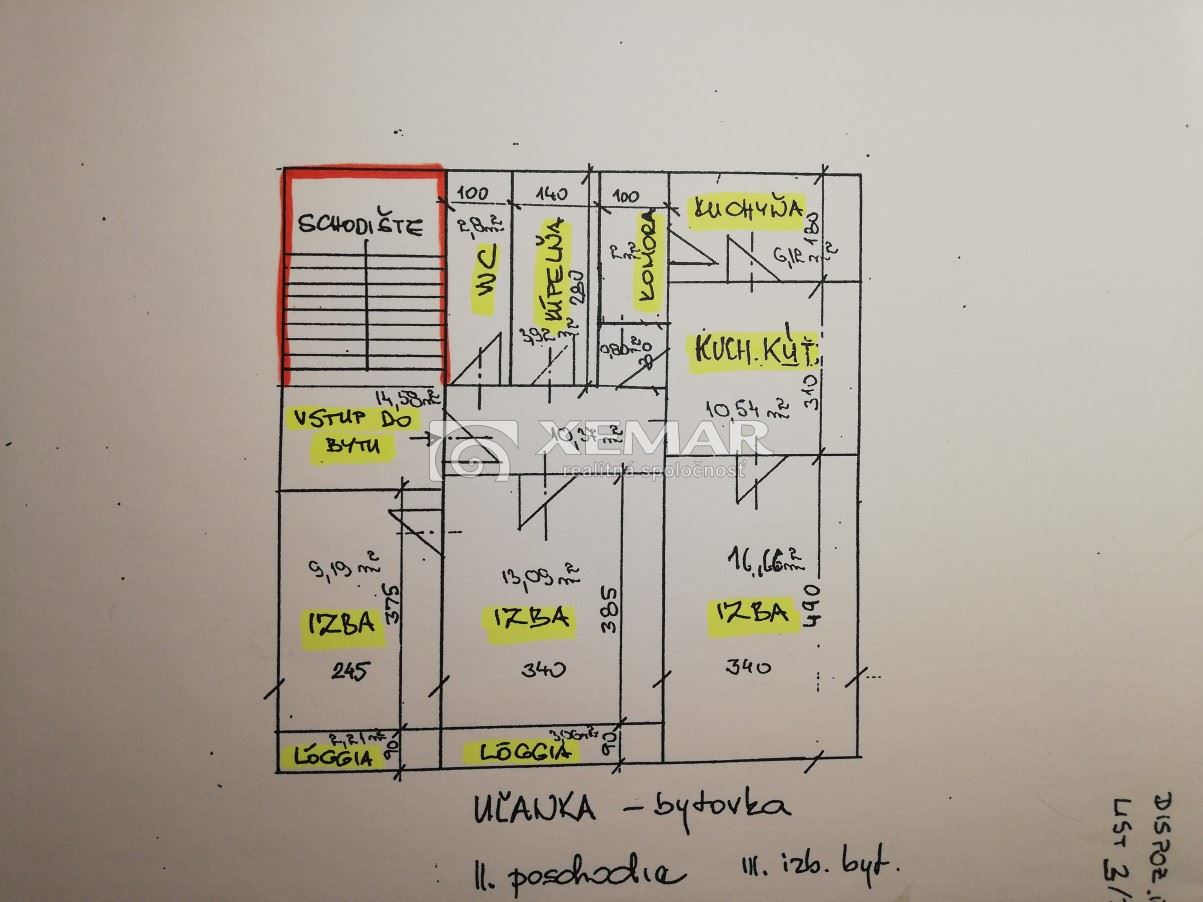 SCHODIŠTE
100
2,8m²
WC
140
KÚPELŇA
280
3,92m²
100
KOMORA
2m²
0,80m²
80
KUCHYŇA
180
6,12m²
KUCH. KÚT
10,54 m²
310
14,58m²
VSTUP DO
BYTU
XEMAR
realitná spoločnosť
9,19 m²
IZBA
375
245
13,09m²
IZBA
385
340
16,66m²
IZBA
490
340
2,21m²
LÓGGIA
90
3,06m²
LÓGGIA
90
UĽANKA – bytovka
II. poschodie III. izb. byt.
DISPOZ.
LIST 3/